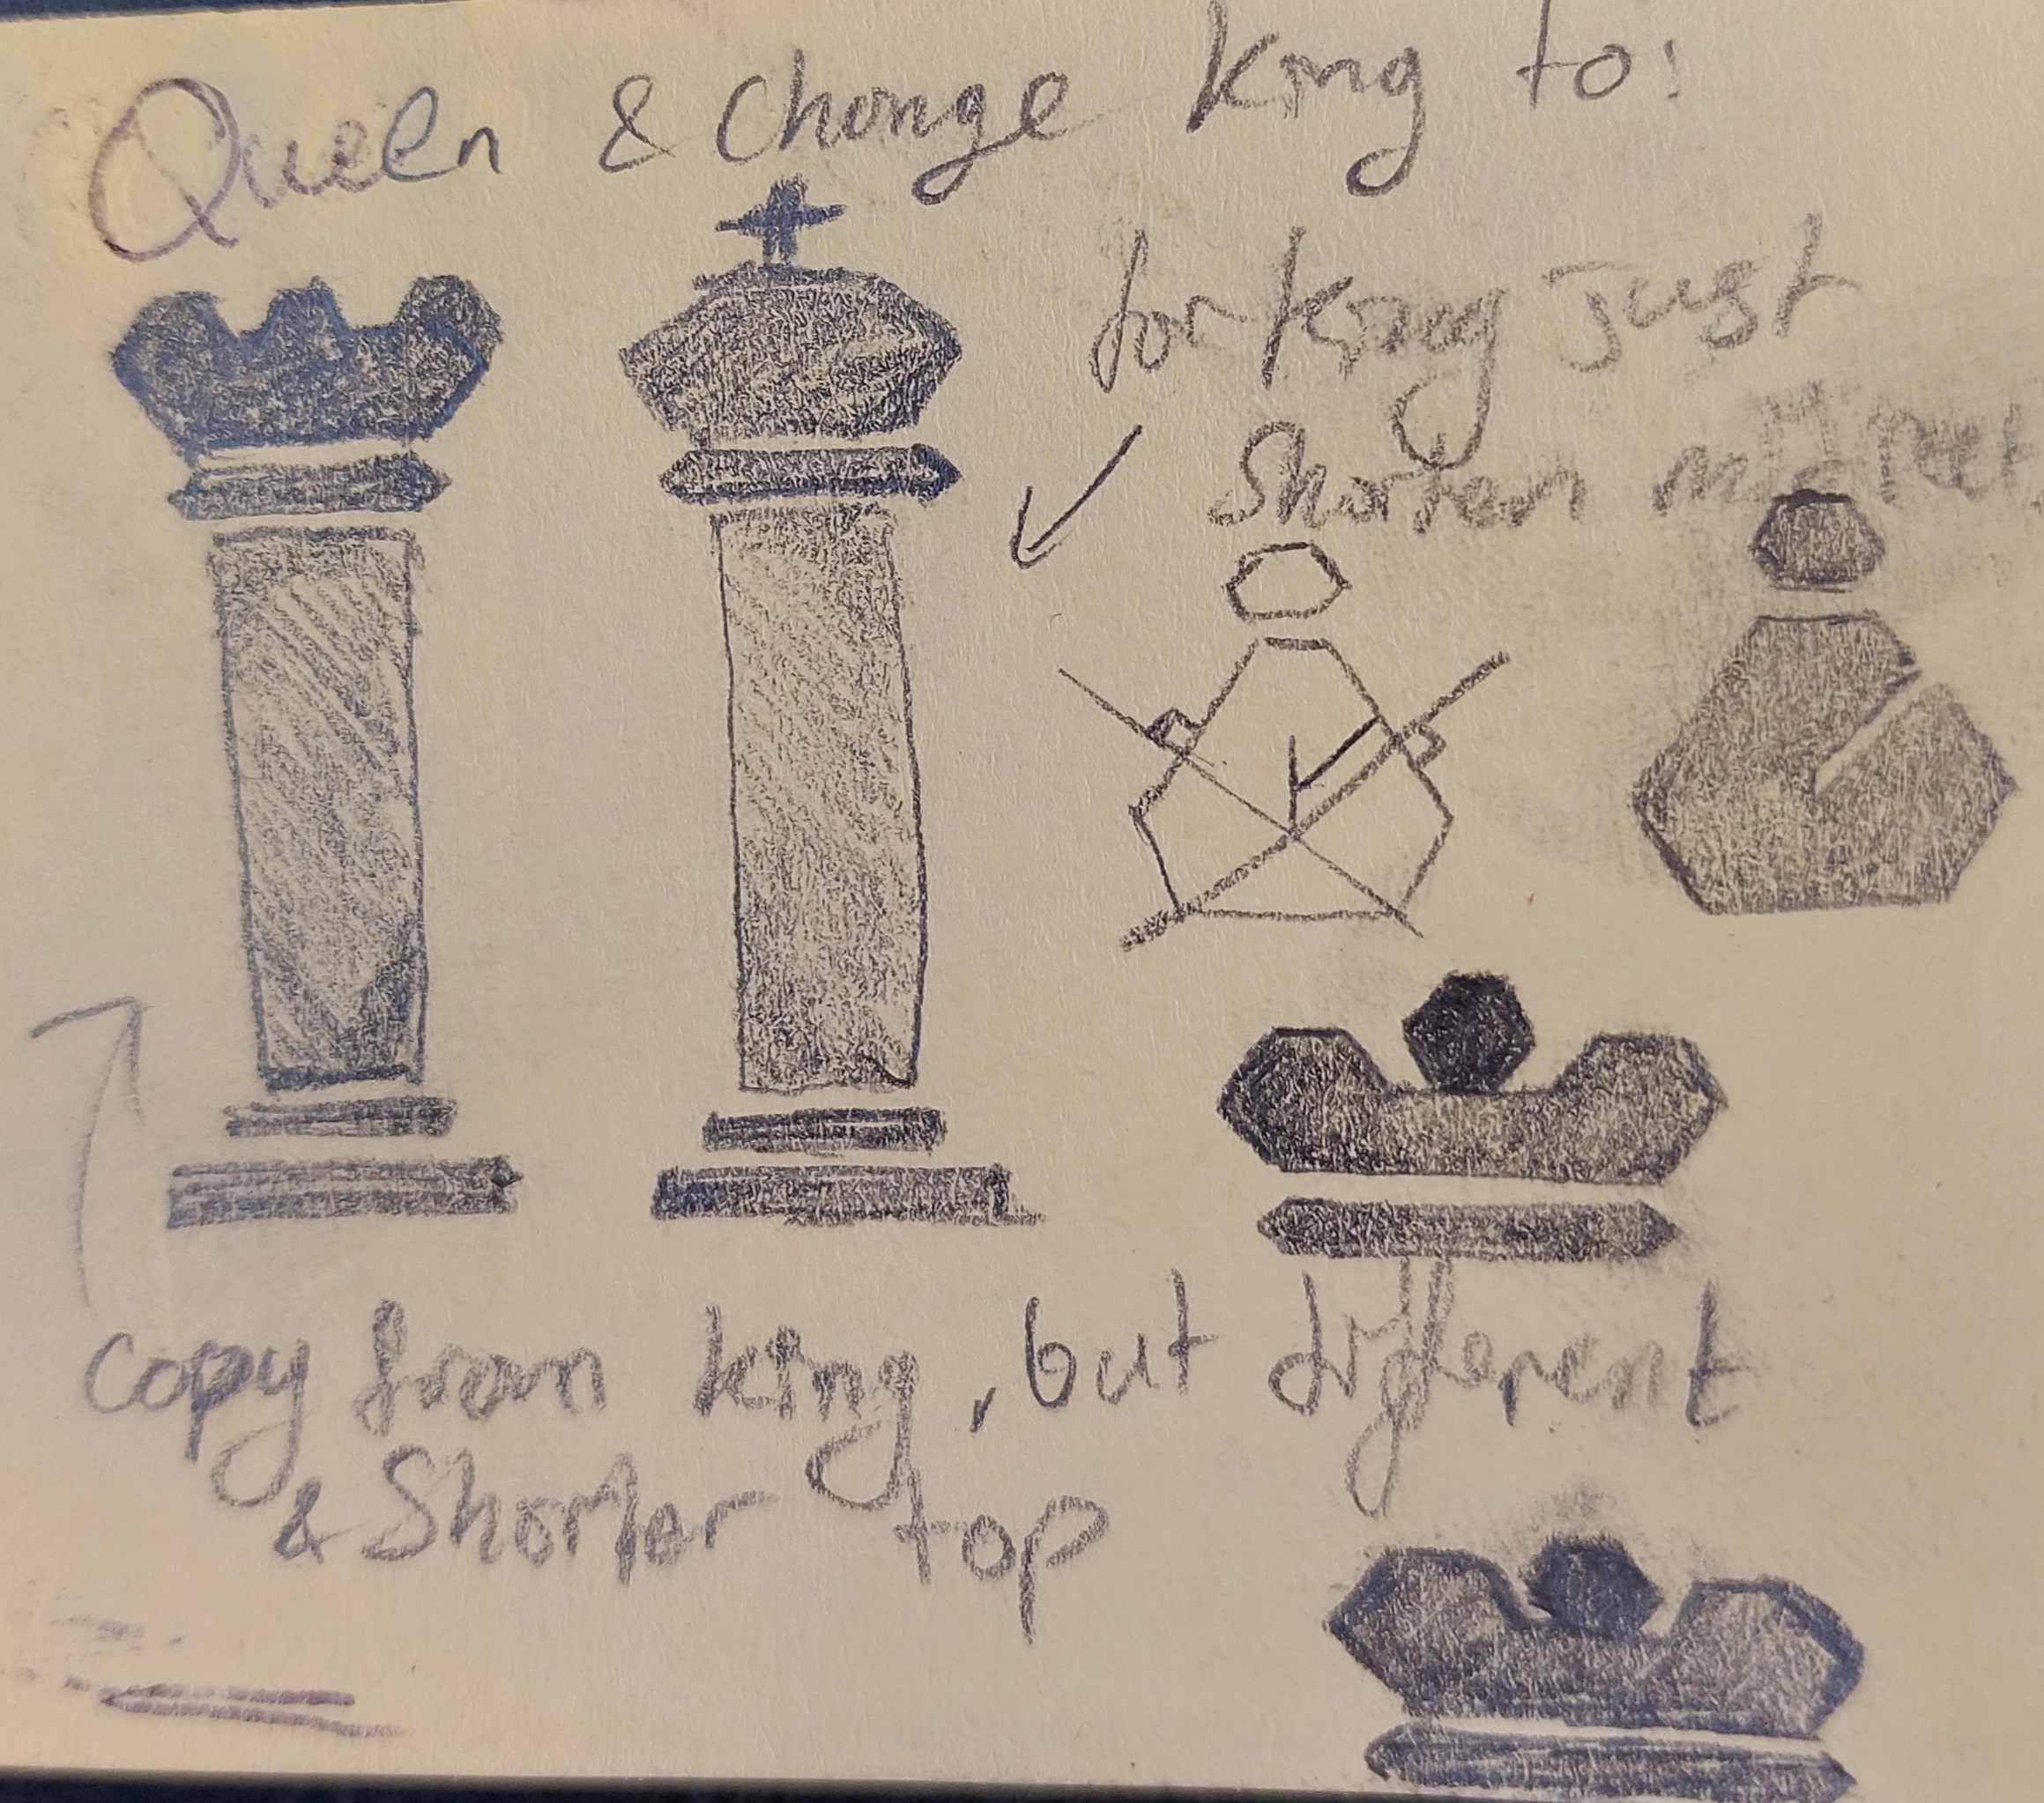 Queen & change king to:
for king just
shorten
copy from king, but different
& shorter top